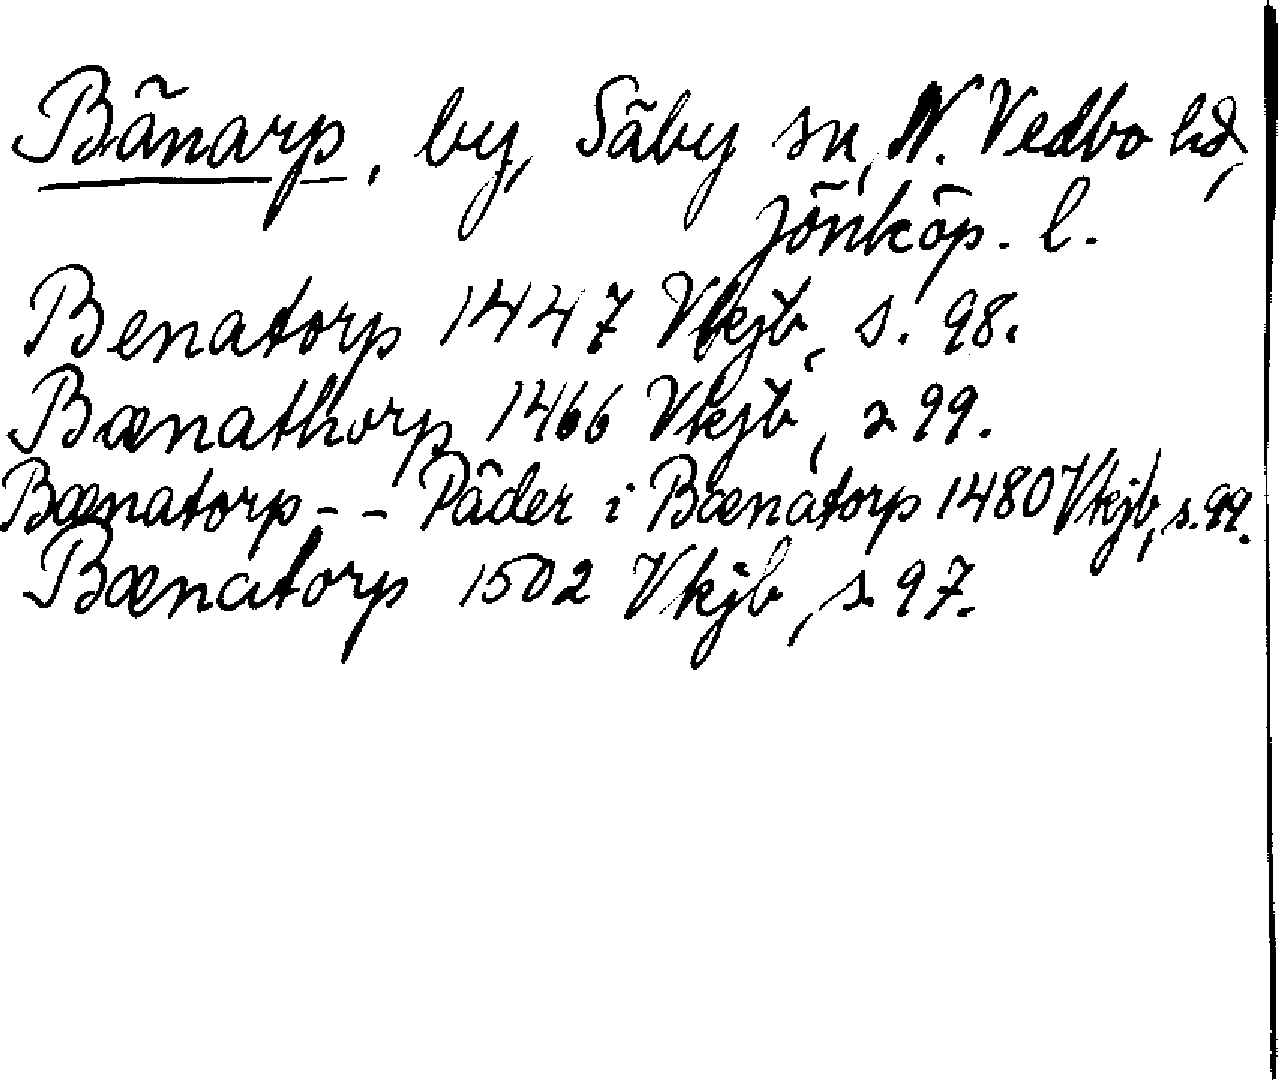 Bänarp, by, Säby sn, N. Vedbo hd,
Jönköp. l.
Benatorp 1447 Vkjb, s. 98.
Bænathorp 1466 Vkjb, s 99.
Bænatorp - - Päder i Bænatorp 1480 Vkjb, s. 99.
Bænatorp 1502 Vkjb, s. 97.